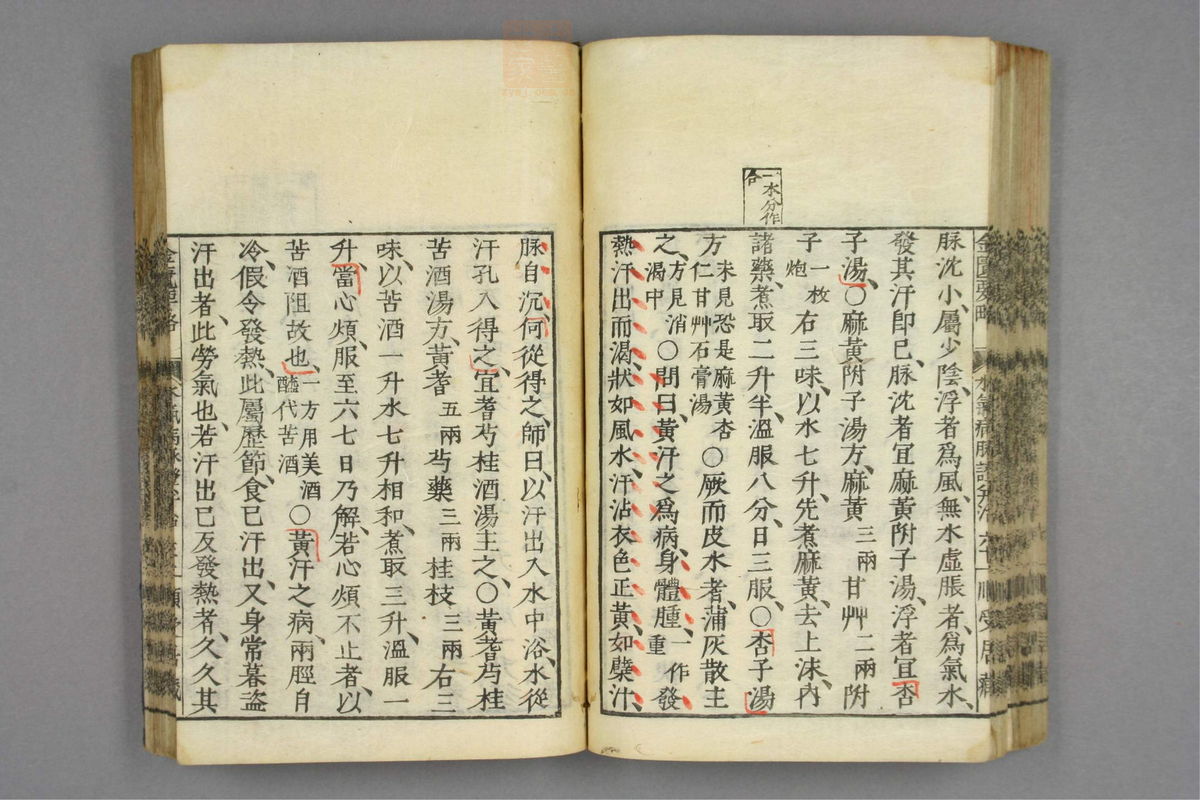 一水分作
合
脉沈小屬少陰浮者爲風無水虛脹者爲氣水
發其汗卽已脉沈者宜麻黃附子湯浮者宜杏
子湯○麻黃附子湯方麻黃三兩甘艸二兩附
子一枚炮右三味以水七升先煮麻黃去上沫內
諸藥煮取二升半溫服八分日三服○杏子湯
方未見恐是麻黃杏仁甘艸石膏湯○厥而皮水者蒲灰散主
之方見消渴中○問曰黃汗之爲病身體腫一作重發
熱汗出而渴狀如風水汗沾衣色正黃如檗汁
脉自沉何從得之師曰以汗出入水中浴水從
汗孔入得之宜耆芍桂酒湯主之○黃耆芍桂
苦酒湯方黃耆五兩芍藥三兩桂枝三兩右三
味以苦酒一升水七升相和煮取三升溫服一
升當心煩服至六七日乃解若心煩不止者以
苦酒阻故也一方用美酒醯代苦酒○黃汗之病兩脛自
冷假令發熱此屬歷節食已汗出又身常暮盜
汗出者此勞氣也若汗出已反發熱者久久其